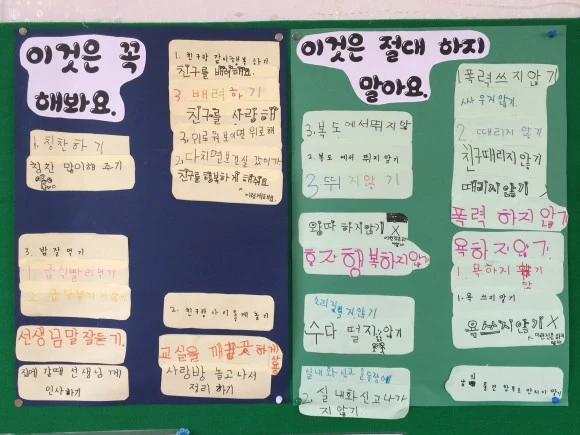 이것은 꼭
해봐요.
1. 칭찬 하 기
칭찬 많이해 주기
3. 밥 잘 먹기
선생님말 잘듣기.
집에 갈때 선생님 께
인사하기
1. 친구랑 같이행복 하기
친구를 배려해요.
3. 배려하기
친구를 사랑해
친구를 행복하게 해줘요.
2. 친구랑 사이좋게 놀기
교실을 깨끗하게
사용
사랑방 놀고나서
정리 하기
이것은 절대 하지
말아요.
3. 복도에서뛰지않
2. 복도 에서 뛰지 않기
3 뛰지않기
왕따 하지않기 X
혼자 행복하지않기
소리지르지않기
수다 떨지않기
실내화신고 운동장에
2. 실내화신고나가
지 않기
1 폭력쓰지않기
싸우지않기.
2 때리지 않기
친구때리지않기
때리지않기
폭력 하지 않기
욕하지않기
1. 욕하지
1. 욕 쓰지않기